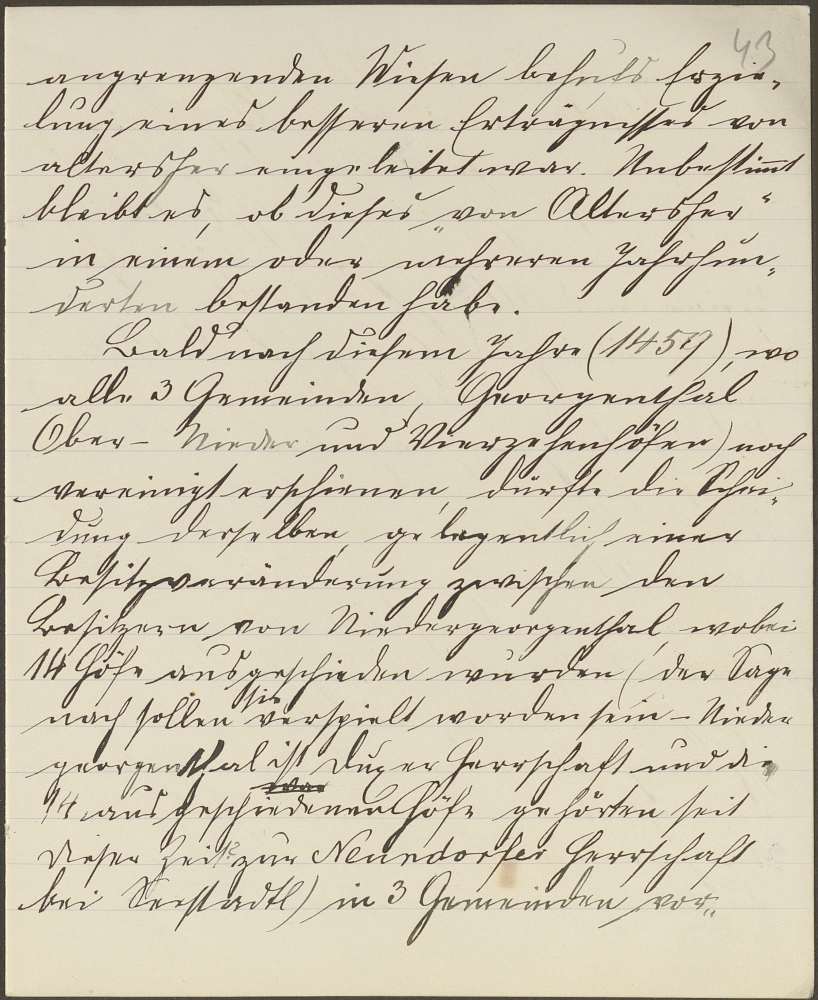 43
angrenzenden Wiesen behufs Erzie-
lung eines besseren Erträgnisses von
altersher eingeleitet war. Unbestimmt
bleibt es, ob dieses „von Altersher"
in einem oder mehreren Jahrhun-
derten bestanden habe.
Bald nach diesem Jahre (1457), wo
alle 3 Gemeinden, Georgenthal
Ober- Nieder und Vierzehenhöfen) noch
vereinigt erschienen, dürfte die Schei-
dung derselben, gelegentlich einer
Besitzveränderung zwischen den
Besitzern von Niedergeorgenthal, wobei
14 Höfe ausgeschieden wurden (der Sage
nach sollen sie verspielt worden sein – Nieder
georgenthal ist Duxer Herrschaft und die
war
14 ausgeschiedenen Höfe gehörten seit
dieser Zeit zur Neundorfer Herrschaft
bei Seestadtl) in 3 Gemeinden vor-